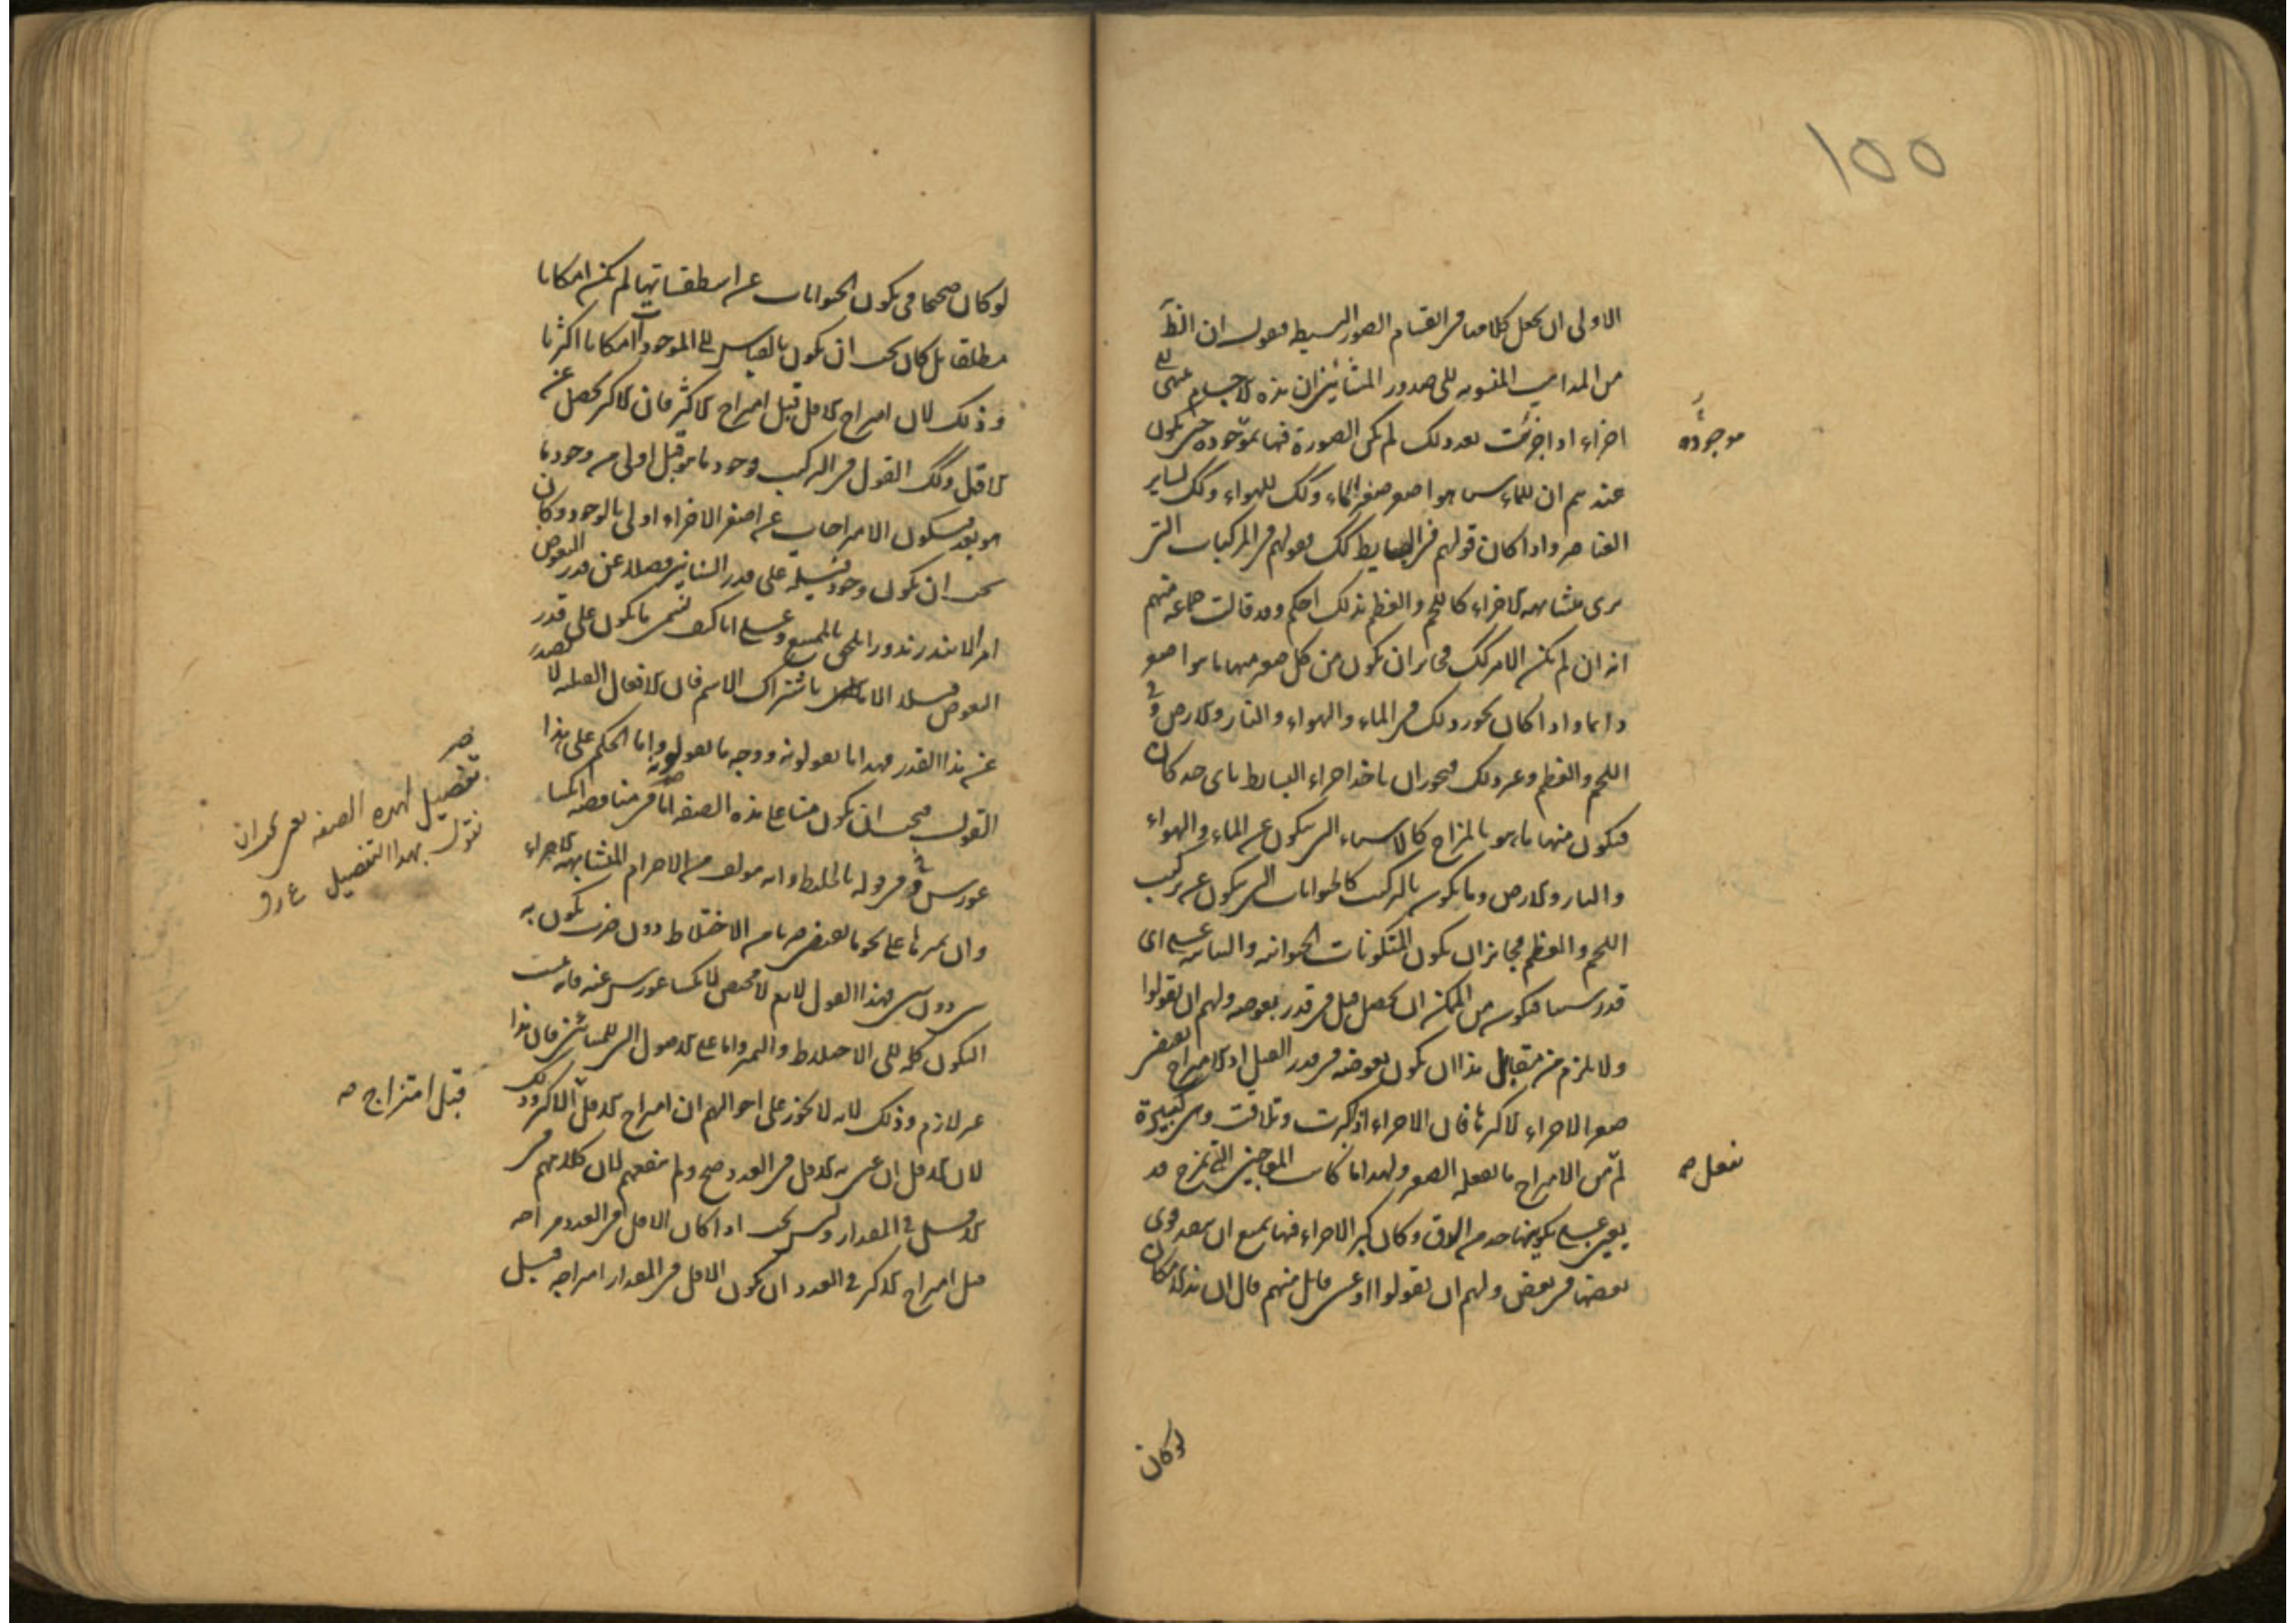 ١٥٥
الاولى ان نجعل كلامنا فى انقسام الصور البسيطة فنقول ان الظ
من المذاهب المنسوبة الى صدور المشائين ان هذه الاجسام تنتهى الى
اجزاء اذا جزئت بعد ذلك لم تكن الصورة فيها بموجودة حتى يكون
موجودة
عندهم ان للماء شيئا هو اصغر صغير الماء وكك للهواء وكك لساير
العناصر واذا كان قولهم فى البسايط كك فقولهم فى المركبات التى
نرى متشابهة الاجزاء كاللحم والعظم بذلك احكم وقد قالت جماعة منهم
انه ان لم يكن الامر كك فجايز ان يكون من كل صغير منها ما هو اصغر
دايما واذا كان يجوز ذلك فى الماء والهواء والنار والارض وفى
اللحم والعظم وغير ذلك فيجوز ان ياخذ اجزاء البسايط باى حد كان
فيكون منها ما هو بالمزاج كالاشياء التى تكون عن الماء والهواء
والنار والارض وما يكون بالتركيب كالحيوانات التى تكون عن تركيب
اللحم والعظم فجايز ان يكون المتكونات الحيوانية والنباتية على اى
قدر شئنا فيكون من الممكن ان يحصل فيل فى قدر بعوضة ولهم ان يقولوا
ولا يلزم من مقابل هذا ان يكون بعوضة فى قدر الفيل اذ الامتزاج بعض
صغر الاجزاء لا كبرها فان الاجزاء اذا كبرت وتلاقت وهى كبيرة
لم من الامتزاج ما يفعله الصغر ولهذا ما كانت المعاجين التى تمزج قد
نفعل صح
يعين على تكوينها جودة الدق وكان كبر الاجزاء فيها يمنع ان ينفذ قوى
بعضها فى بعض ولهم ان يقولوا او عسى قايل منهم قال ان هذا الامكان
لو كان
لو كان صحيحا فى تكون الحيوانات عن اسطقساتها لم يكن امكانا
مطلقا بل كان يجب ان يكون بالقياس الى الموجودات امكانا اكثريا
وذلك لان امتزاج الاقل قبل امتزاج الاكثر فان الاكثر يحصل عن
الاقل وكك القول فى التركيب ووجود ما هو قبل اولى من وجود ما
هو بعد فيكون الامتزاجات عن اصغر الاجزاء اولى بالوجود وكان
يجب ان يكون وجود فيلة على قدر السنانير فضلا عن قدر البعوض
امرا لا يندر ندورا يلحق بالممتنع وعلى انا كيف نسمى ما يكون على قدر
البعوض فيلا الا باشتراك الاسم فان الافعال الفيلية لا تصدر
عن هذا القدر فهذا ما يقولونه ووجه ما يقولونه واما الحكم على هذا
القول فيجب ان يكون منا على هذه الصفة اما فى مناقضة انكسا
تفصيل لهذه الصفة يعنى نحو ان
نقول بهذا التفصيل
غورس فى قوله بالخليط وانه مؤلف من الاجرام المتشابهة الاجزاء
وان تميزها على نحو بالعنصر ما من الاختلاط دون ضرب تكون به
شىء دون شىء فهذا القول لازم لا محيص لانكساغورس عنه فانه ينسب
التكون كله الى الاختلاط والتميز واما على الاصول التى للمشائين فان هذا
غير لازم وذلك لانه لا يجوز على احوالهم ان امتزاج الاقل الاكثر وذلك
قبل امتزاج صح
لان الاقل ان عنى به الاقل فى العدد صح ولم ينفعهم لان كلامهم فى
الاقل فى المقدار وليس يجب اذا كان الاقل فى العدد مزاجه
قبل امتزاج الاكثر فى العدد ان يكون الاقل فى المقدار امتزاجه قبل